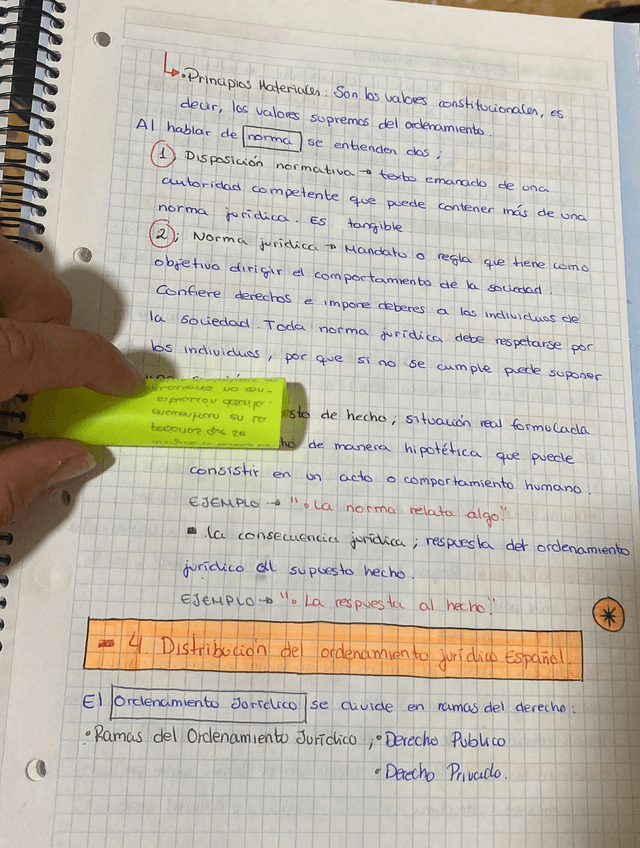 • Principios Materiales: Son los valores constitucionales, es
decir, los valores supremos del ordenamiento.
Al hablar de norma se entienden dos;
1 Disposición normativa → texto emanado de una
autoridad competente que puede contener más de una
norma jurídica. Es tangible
2; Norma jurídica → Mandato o regla que tiene como
objetivo dirigir el comportamiento de la sociedad.
Confiere derechos e impone deberes a los individuos de
la sociedad. Toda norma jurídica debe respetarse por
los individuos, por que si no se cumple puede suponer
esto de hecho; situación real formulada
ho de manera hipotética que puede
consistir en un acto o comportamiento humano.
EJEMPLO → "• La norma relata algo."
- la consecuencia jurídica; respuesta del ordenamiento
jurídico al supuesto hecho.
EJEMPLO → "• La respuesta al hecho."
- 4. Distribución del ordenamiento jurídico Español.
El Ordenamiento Jurídico se divide en ramas del derecho:
• Ramas del Ordenamiento Jurídico; • Derecho Publico
• Derecho Privado.